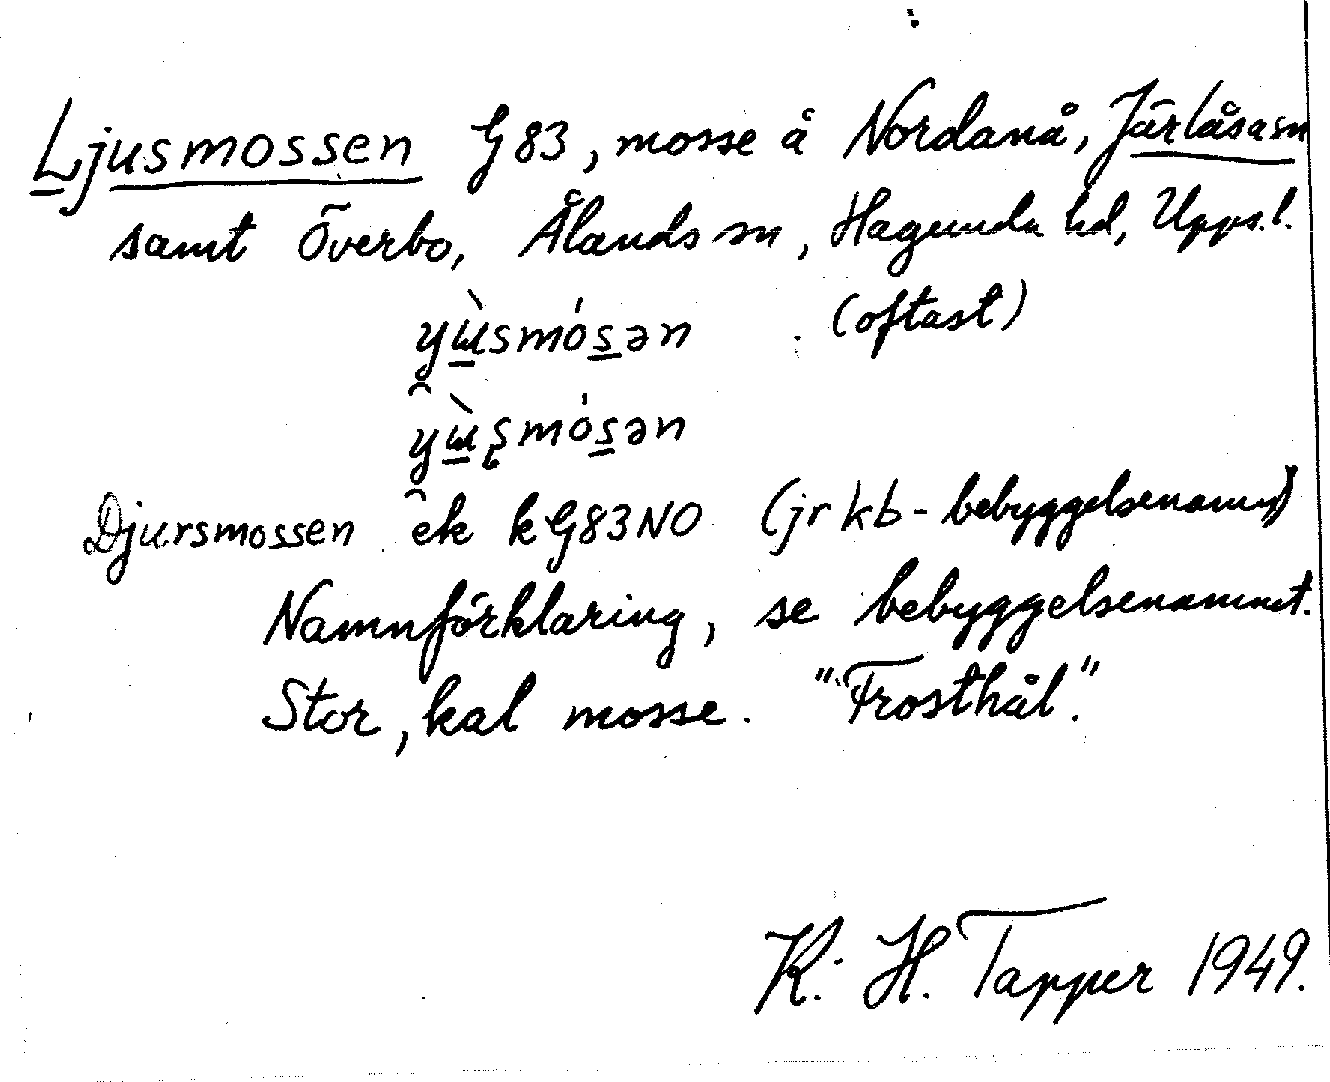 Ljusmossen G83, mosse å Nordanå, Järlåsa sn
samt Överbo, Ålands sn, Hagunda hd, Upps. l.
(oftast)
Djursmossen ek kG83NO (jr kb-bebyggelsenamn)
Namnförklaring, se bebyggelsenamnet.
Stor, kal mosse. "Frosthål".
K. H. Tapper 1949.